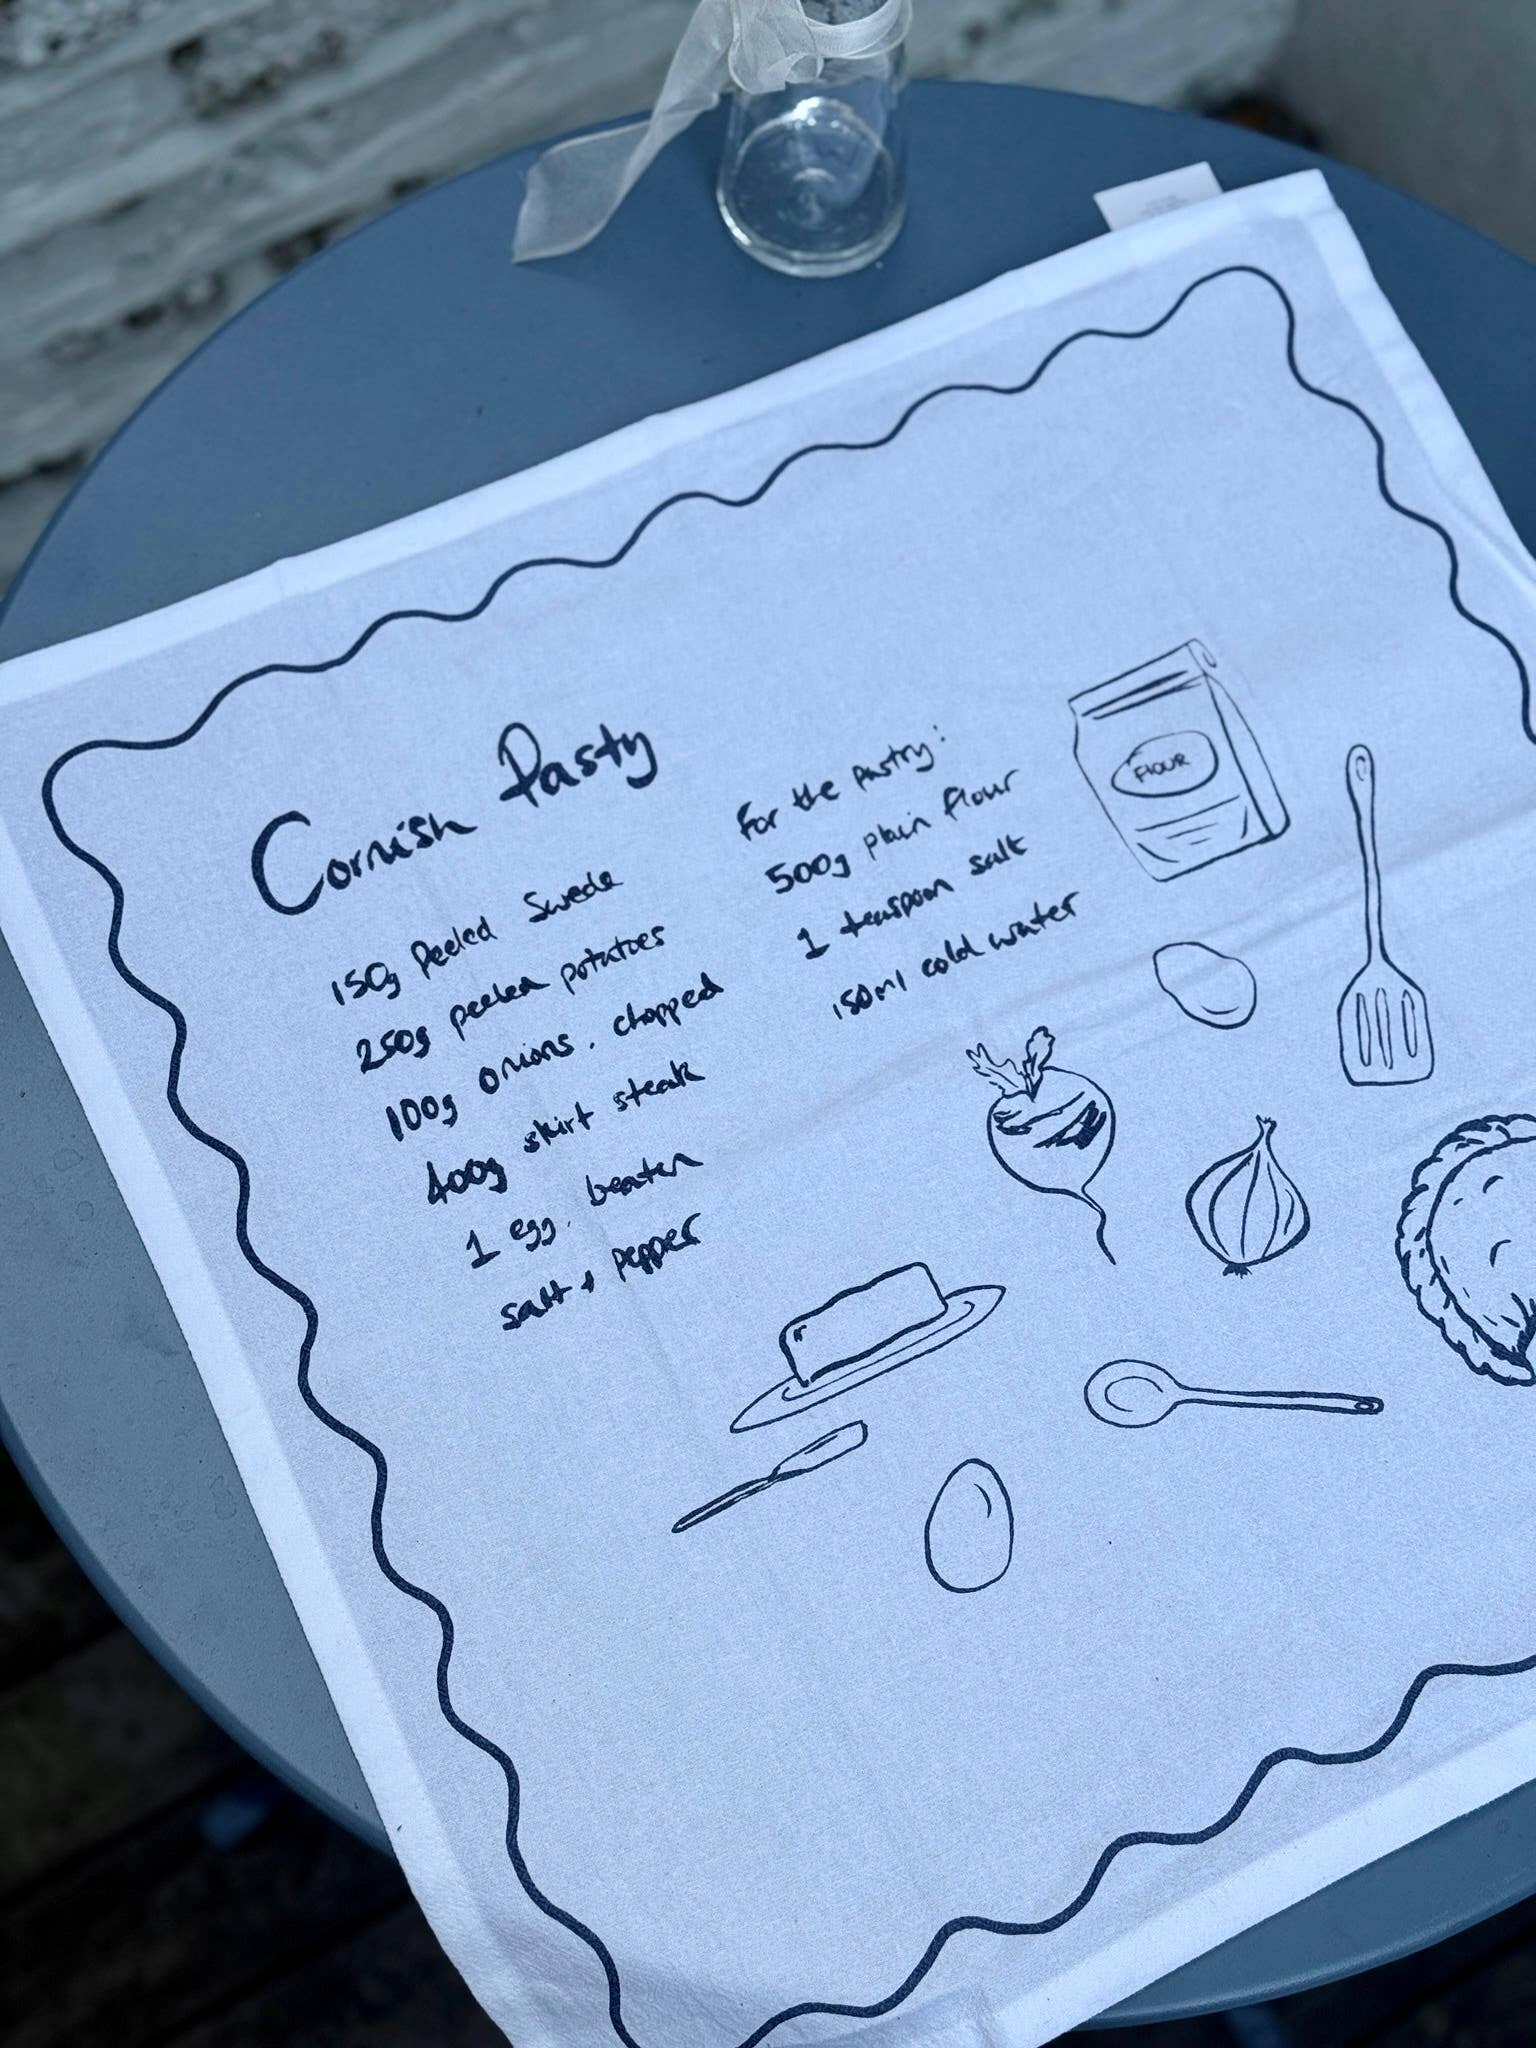 Cornish Pasty
150g Peeled Swede
250g peeled potatoes
100g onions, chopped
400g skirt steak
1 egg, beaten
salt + pepper
For the pastry:
500g plain flour
1 teaspoon salt
150ml cold water
FLOUR